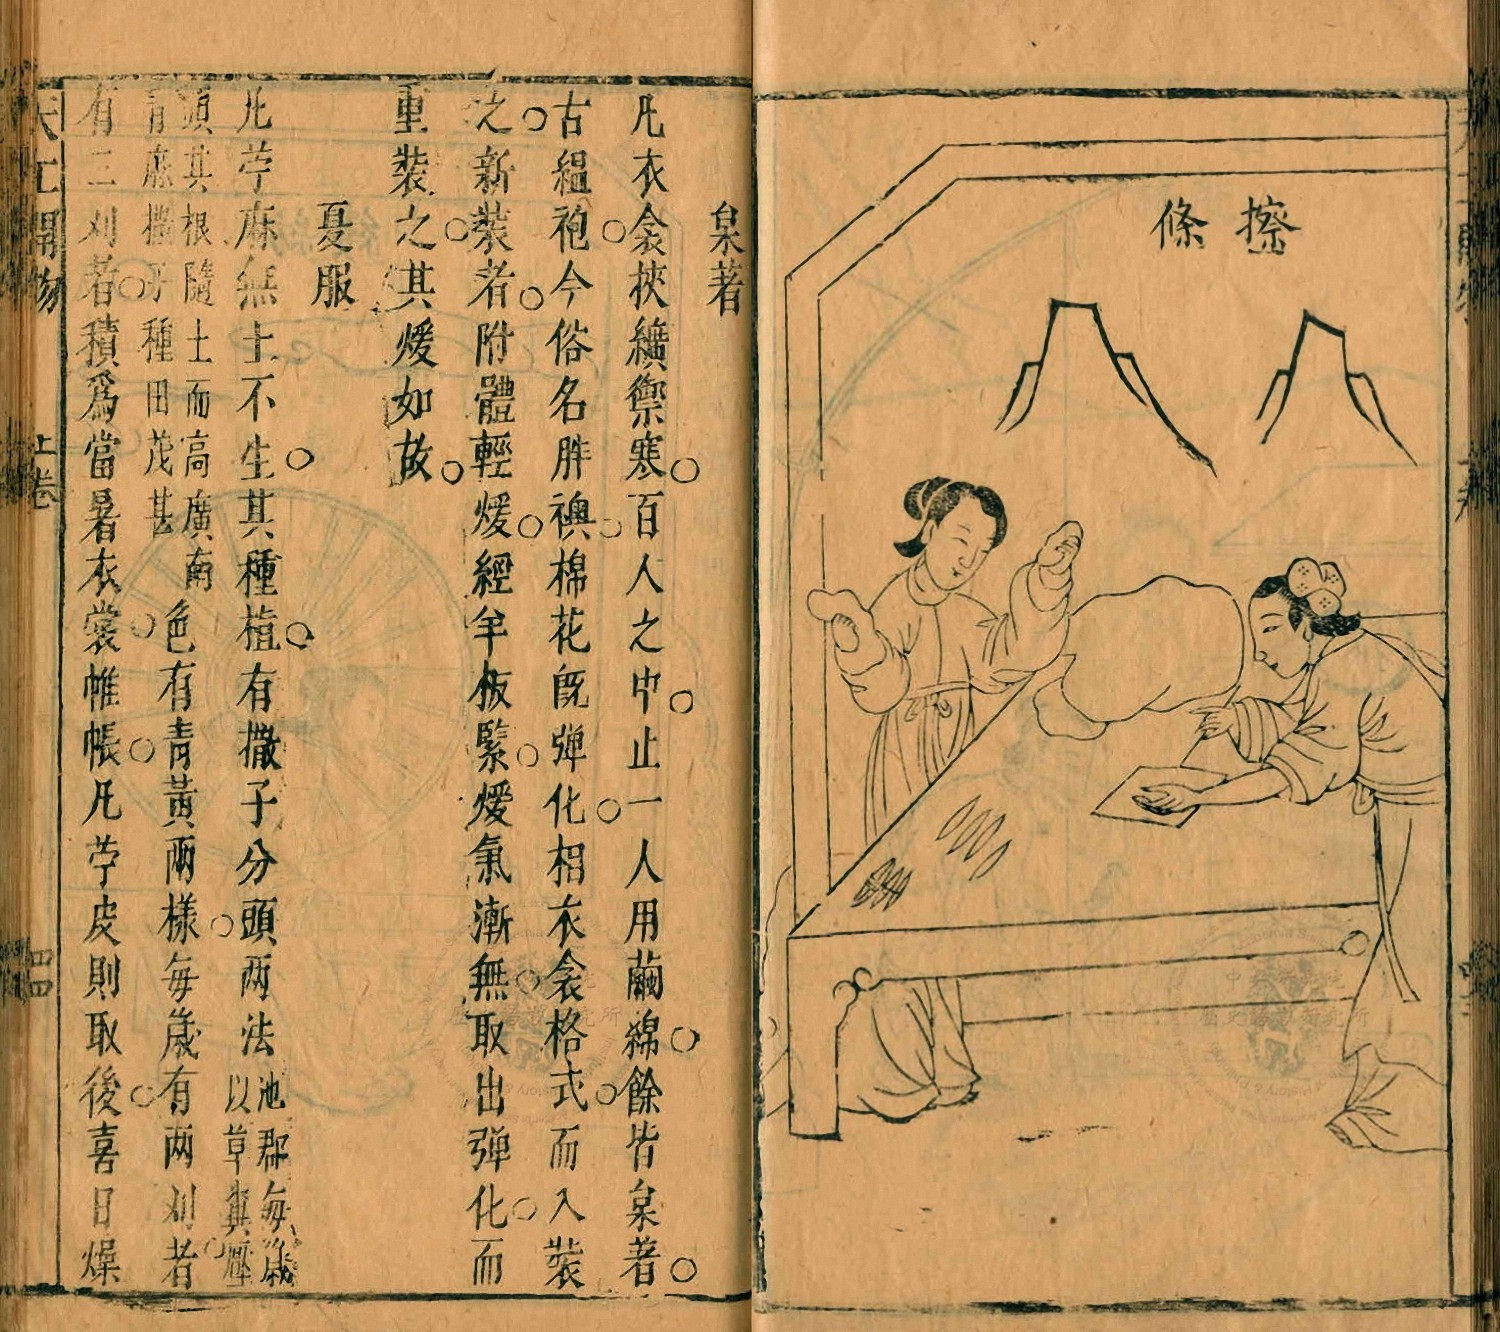 擦條
枲著
凡衣衾挾纊禦寒百人之中止一人用繭綿餘皆枲著
古縕袍今俗名胖襖棉花旣弹化相衣衾格式而入裝
之新裝者附體輕煖經年板緊煖氣漸無取出弹化而
重裝之其煖如故
夏服
凡苧麻無土不生其種植有撒子分頭两法池郡每歲以草糞壓
頭其根隨土而高廣南青麻撒子種田茂甚色有青黃兩樣每歲有两刈者
有三刈者積爲當暑衣裳帷帳凡苧皮剥取後喜日燥
天工開物 上卷 四四